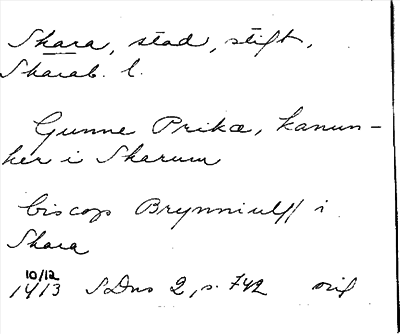 Skara, stad, stift,
Skarab. l.
Gunne Prikæ, kanun-
ker i Skarum
biscop Brynniulff i
Skara
10/12
1413 SDns 2, s. 742 orig